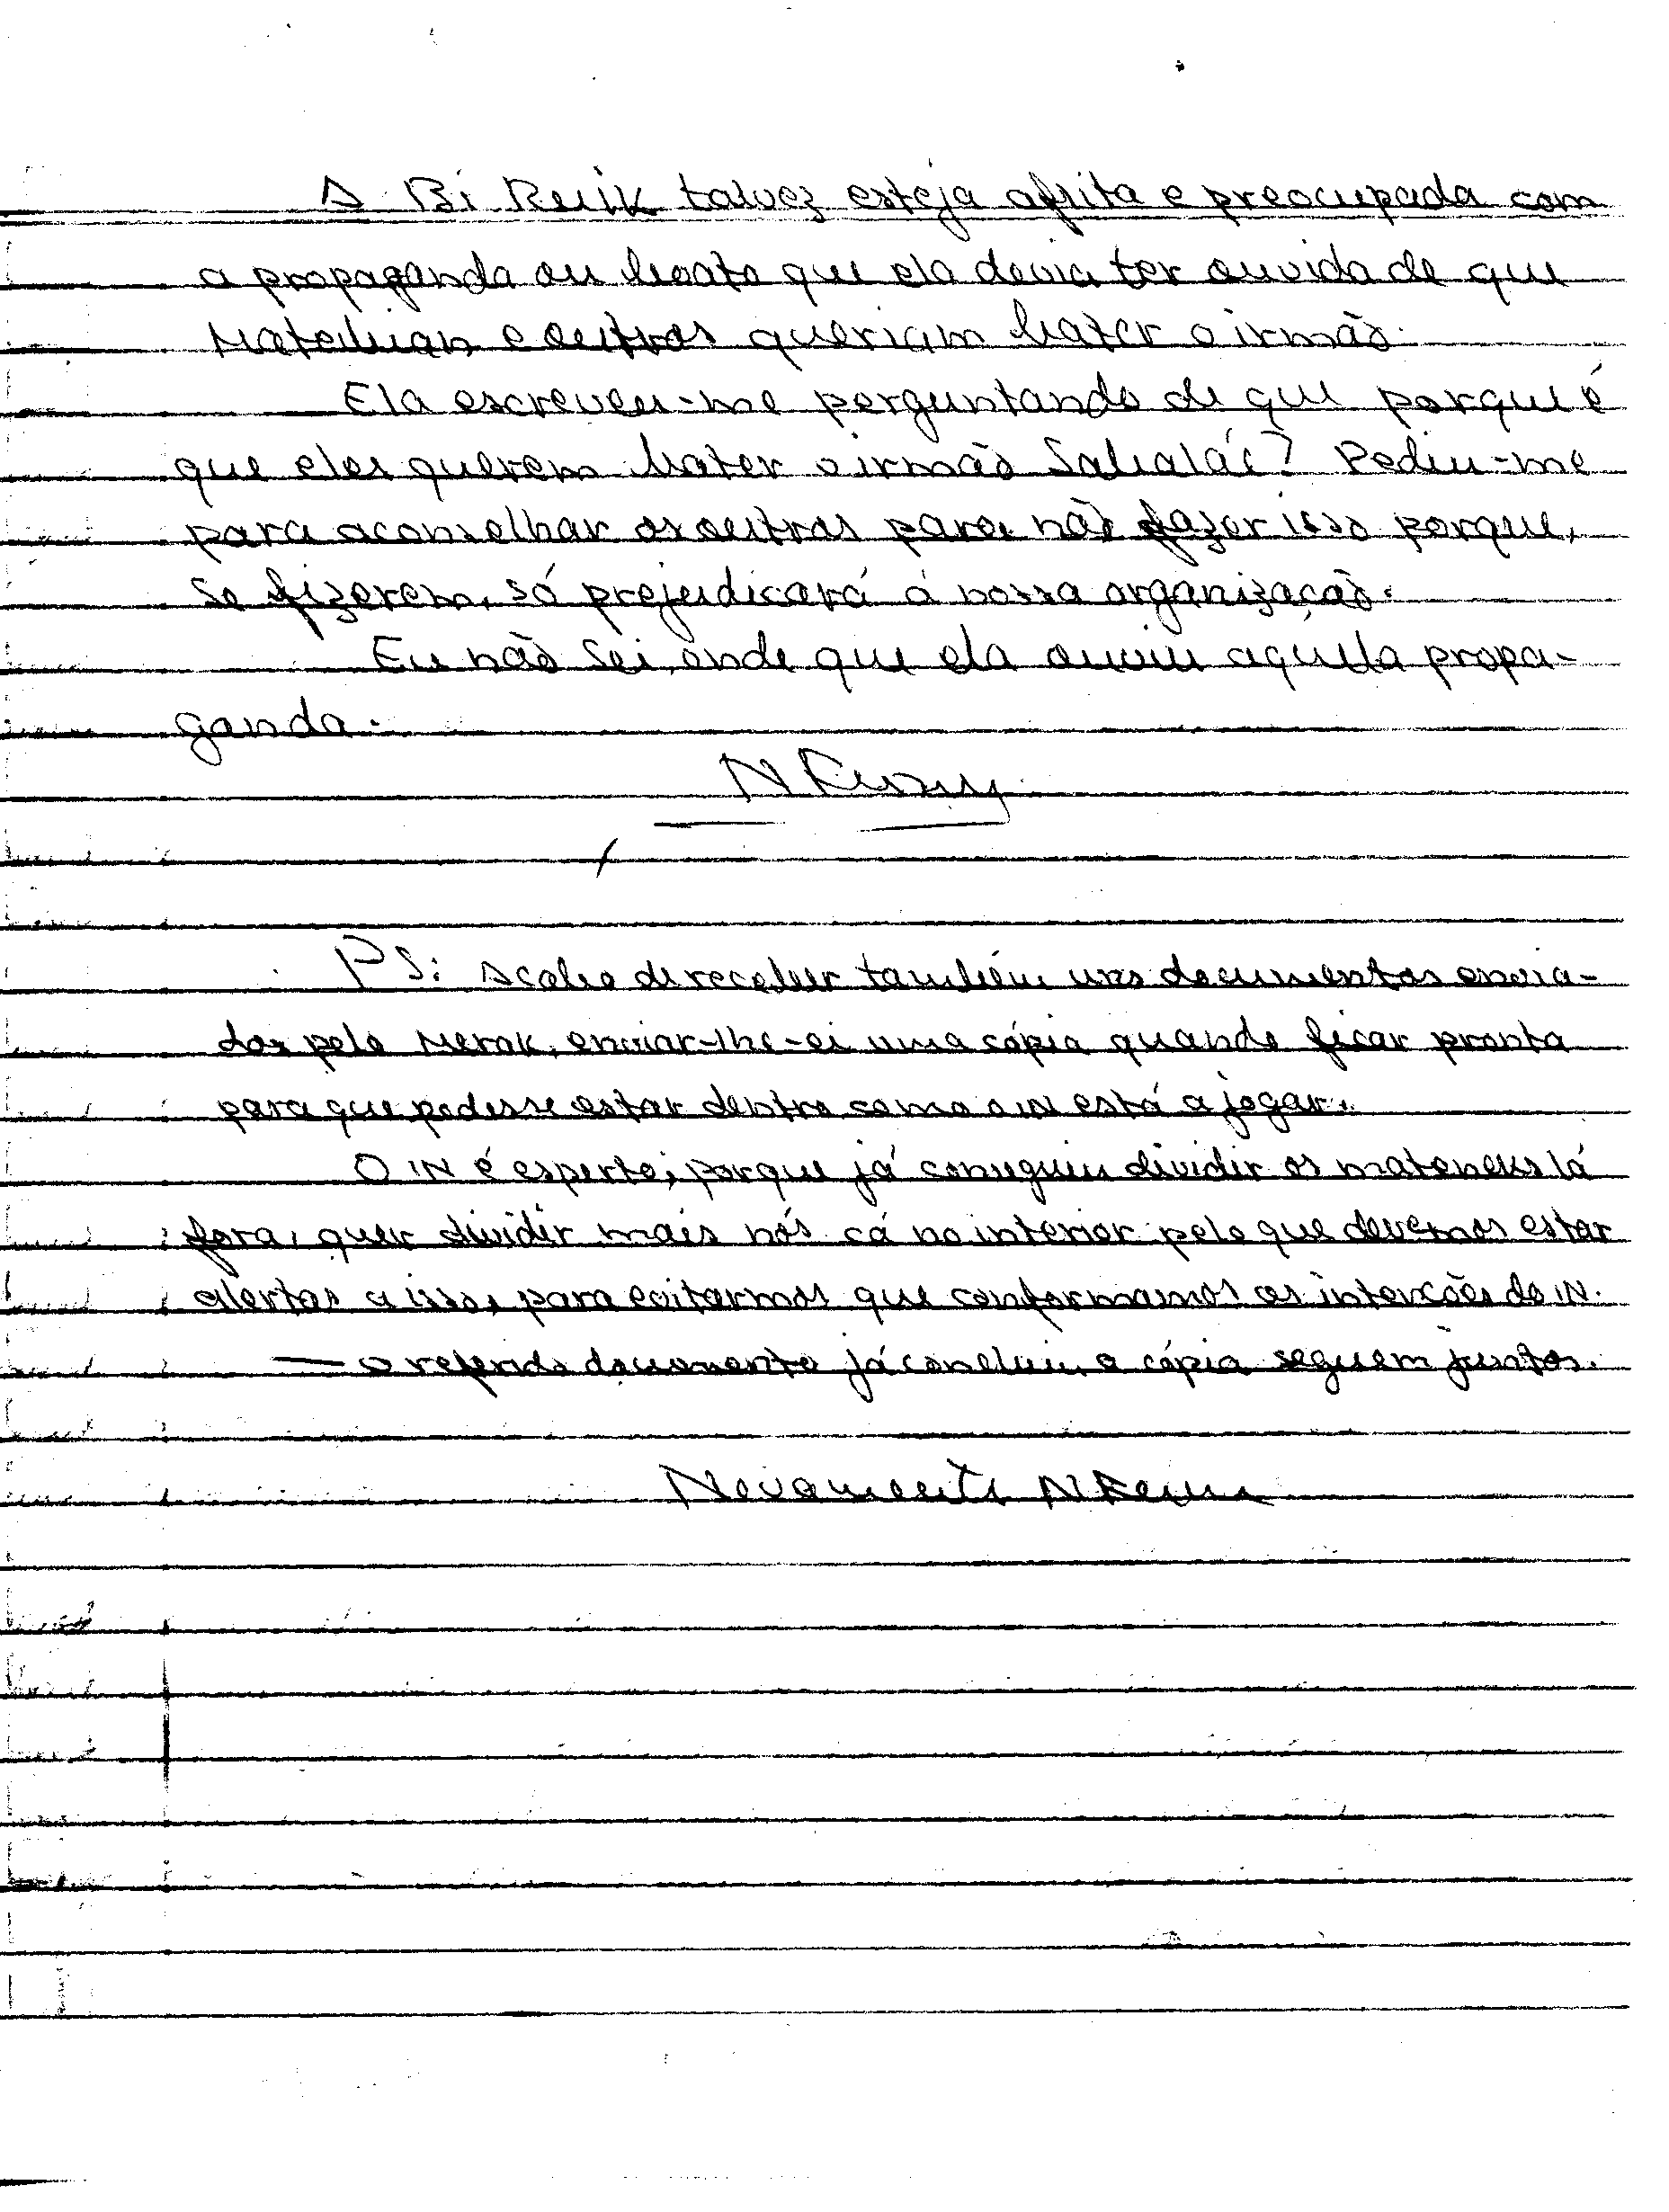 A Bi Reuik talvez esteja aflita e preocupada com
a propaganda ou boato que ela devia ter ouvido de que
e outros queriam bater o irmão.
Ela escreveu-me perguntando de que porque é
que eles querem bater o irmão Sabalaé? Pediu-me
para aconselhar os outros para não fazer isso porque,
se fizerem, só prejudicará á nossa organização.
Eu não sei, onde que ela ouviu aquela propa-
ganda.
PS: Acabo de receber também uns documentos envia-
dos pelo Merak, enviar-lhe-ei uma cópia quando ficar pronta
para que podesse estar dentro como o IN está a jogar.
O IN é esperto, porque já conseguiu dividir os mateneks lá
fora, quer dividir mais nós cá no interior pelo que devemos estar
alertas a isso, para evitarmos que conformamos as intenções do IN.
— o referido documento já concluiu, a cópia seguem juntos.
Novamente